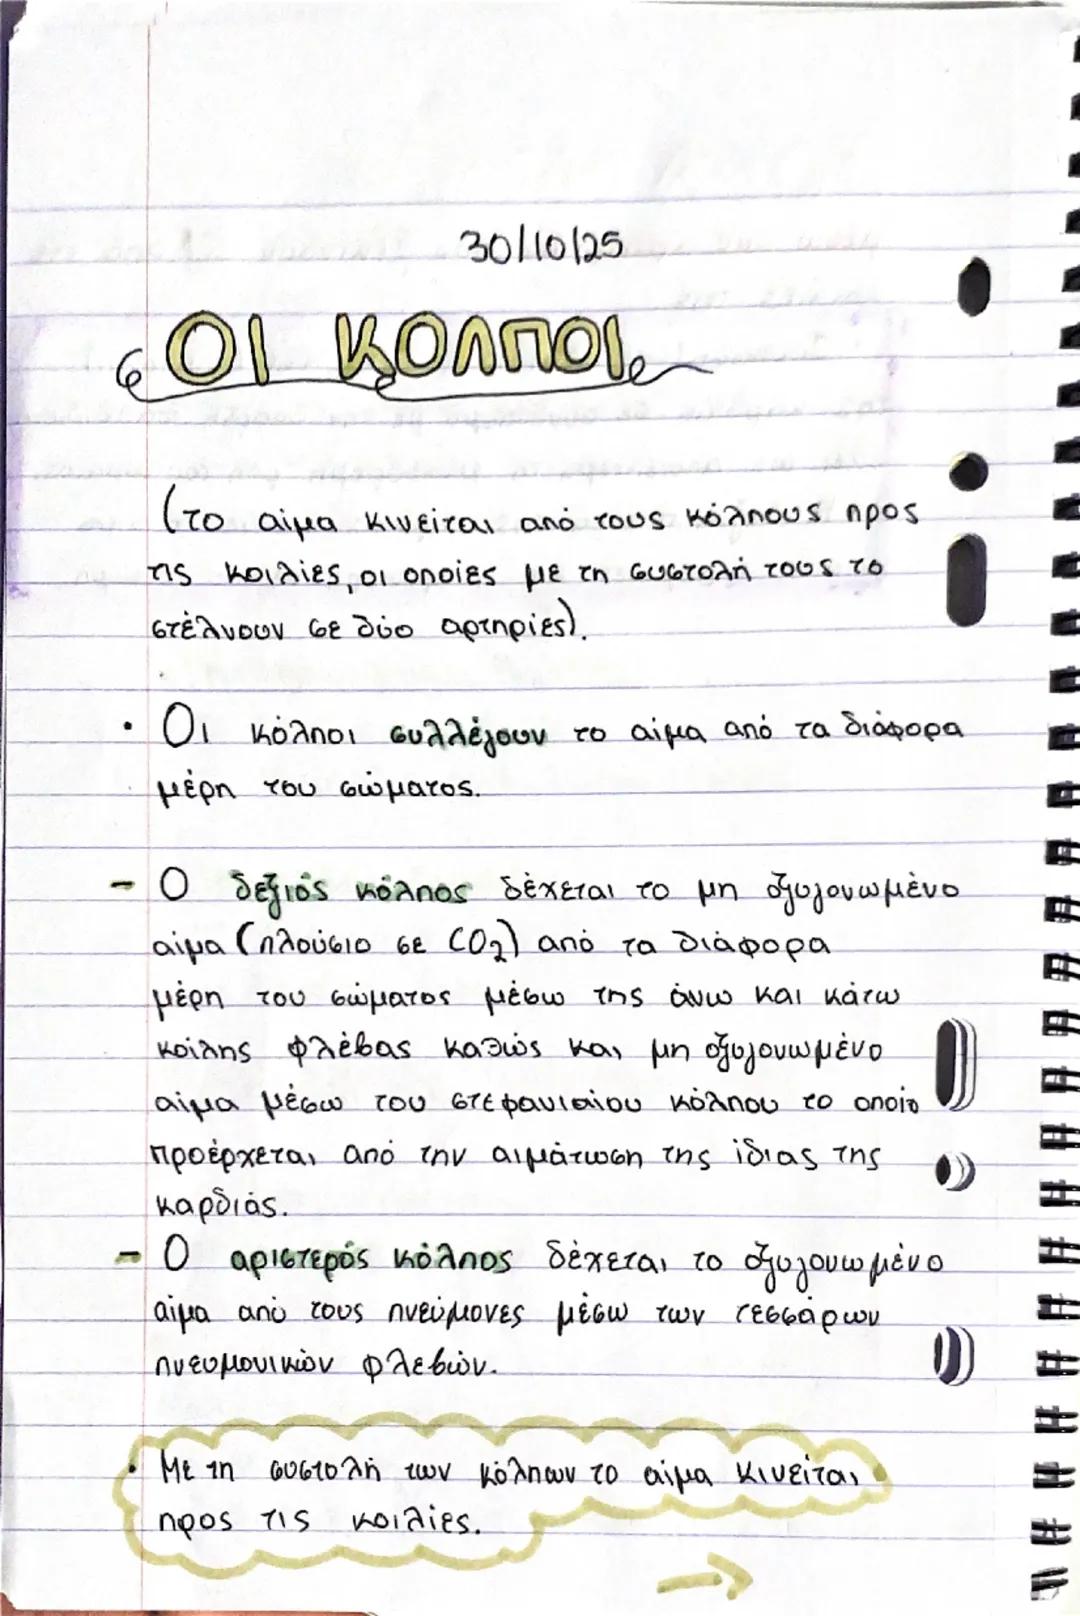 30/10/25
ΟΙ ΚΟΛΠΟΙ
(το αίμα κινείται από τους κόλπους προς
τις κοιλίες, οι οποίες με τη συστολή τους το
στέλνουν σε δύο αρτηρίες).
· Οι κόλποι συλλέγουν το αίμα από τα διάφορα
μέρη του σώματος.
- Ο δεξιός κόλπος δέχεται το μη οξυγονωμένο
αίμα (πλούσιο σε CO₂) από τα διάφορα
μέρη του σώματος μέσω της άνω και κάτω
κοίλης φλέβας καθώς και μη οξυγονωμένο
αίμα μέσω του στεφανιαίου κόλπου το οποίο
προέρχεται από την αιμάτωση της ίδιας της
καρδιάς.
- Ο αριστερός κόλπος δέχεται το οξυγονωμένο
αίμα από τους πνεύμονες μέσω των τεσσάρων
πνευμονικών φλεβών.
· Με τη συστολή των κόλπων το αίμα κινείται
προς τις κοιλίες.